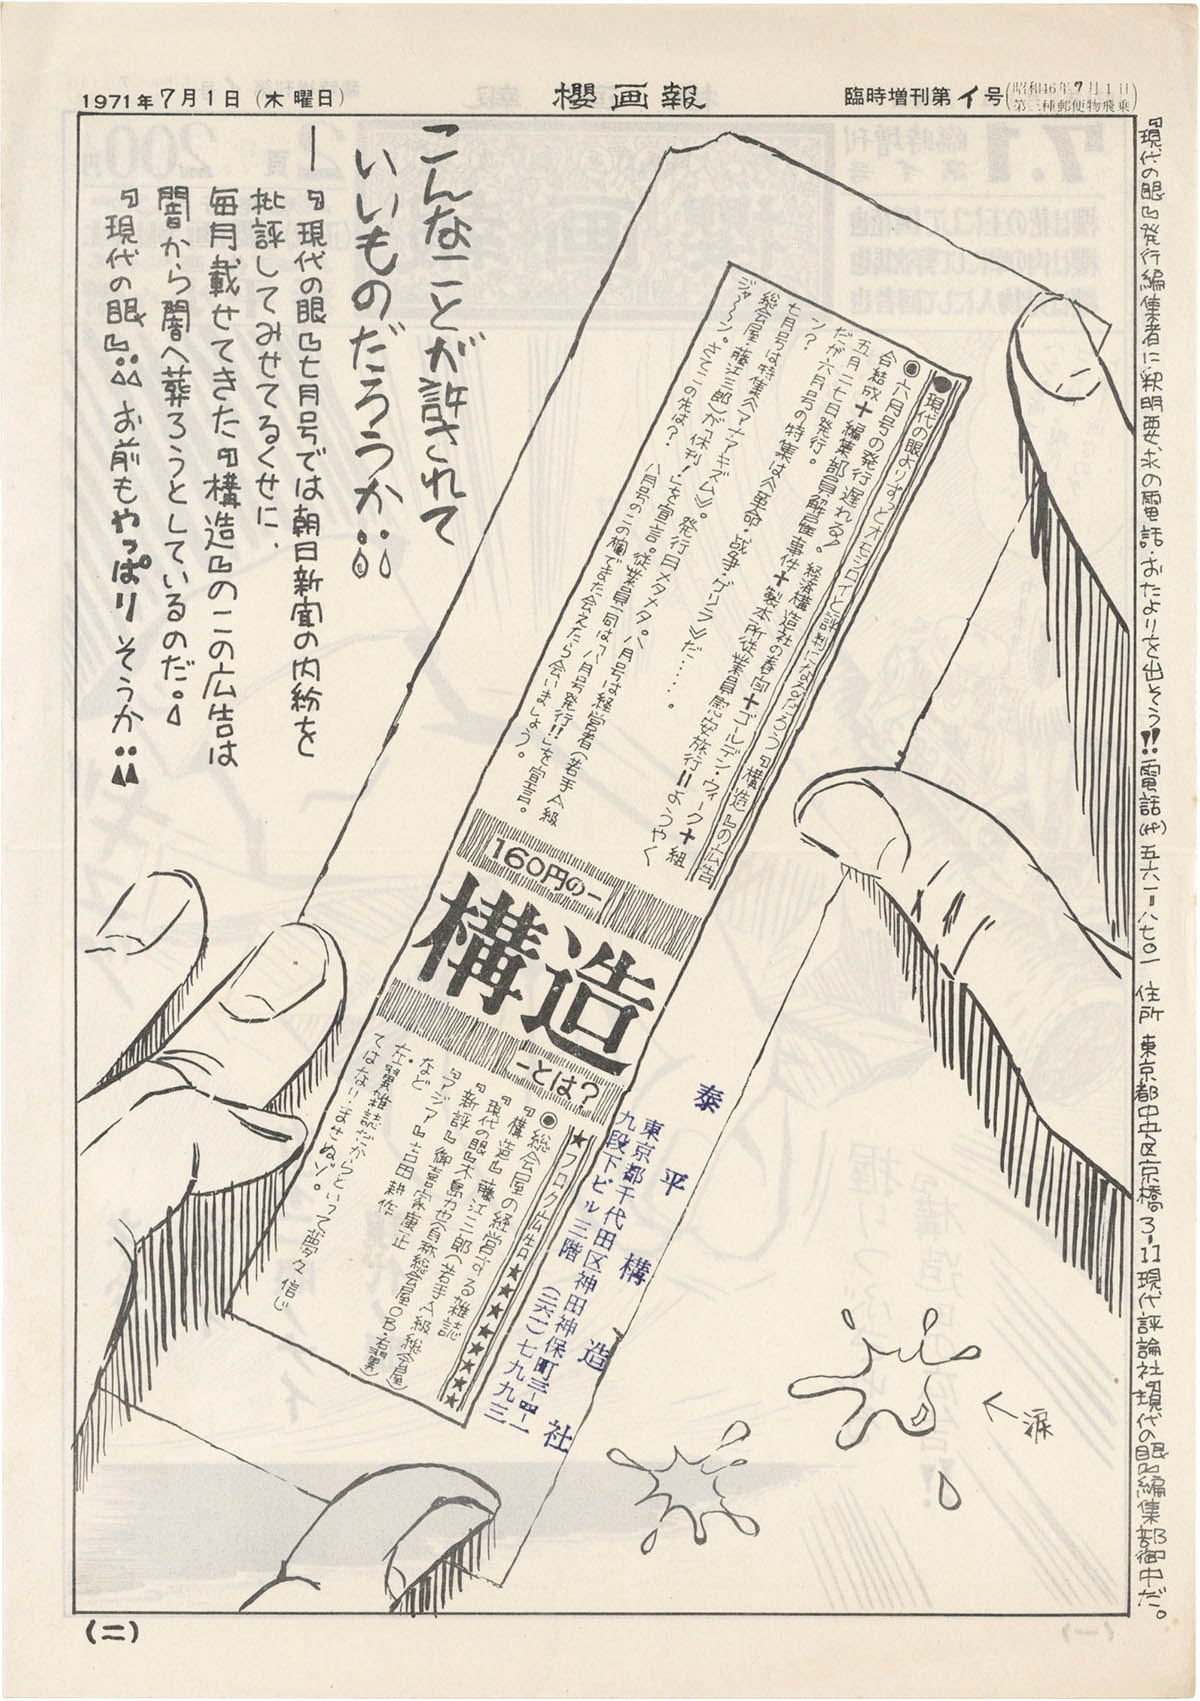 1971年7月1日(木曜日)
櫻画報
臨時増刊第イ号
昭和46年7月1日
第三種郵便物飛乗
『現代の眼』発行編集者に釈明要求の電話・おたよりを出そう!!電話(代)五六一=八七〇一 住所 東京都中央区京橋3-11現代評論社『現代の眼』編集部御中だ。
こんなことが許されて
いいものだろうか!!
―『現代の眼』七月号では朝日新聞の内紛を
批評してみせてるくせに、
毎月載せてきた『構造』のこの広告は
闇から闇へ葬ろうとしているのだ。
『現代の眼』!!お前もやっぱりそうか!!
●現代の眼よりずっとオモシロイと評判になるだろう『構造』の広告
◉六月号の発行遅れる!経済構造社の春闘+ゴールデン・ウィーク+組
合結成+編集部員解雇事件+製本所従業員慰安旅行=ようやく
五月二七日発行。
だが六月号の特集は《革命・战争・ゲリラ》だ……。
ン?
七月号は特集《アナーキズム》。発行日メタメタ。
総会屋・藤江三郎が「休刊!」を宣言。従業員一同は「八月号発行!!」を宣言。
ジャ〜〜ン。さてこの先は? 八月号のこの欄でまた会えたら会いましょう。
八月号は経営者(若手A級
160円の―
構造
―とは?
★フロク広告★★★★★★★★★
◉総会屋の経営する雑誌
『構造』藤江三郎(若手A級総会屋)
『現代の眼』木島力也(自称総会屋OB・右翼)
『新評』御喜家康正
『アジア』吉田耕作
など
左翼雑誌だからといって夢々信じ
てはなりませぬゾ。
泰平構造社
東京都千代田区神田神保町三-四-一
九段下ビル三階 (二六一)七九九三
涙
(二)